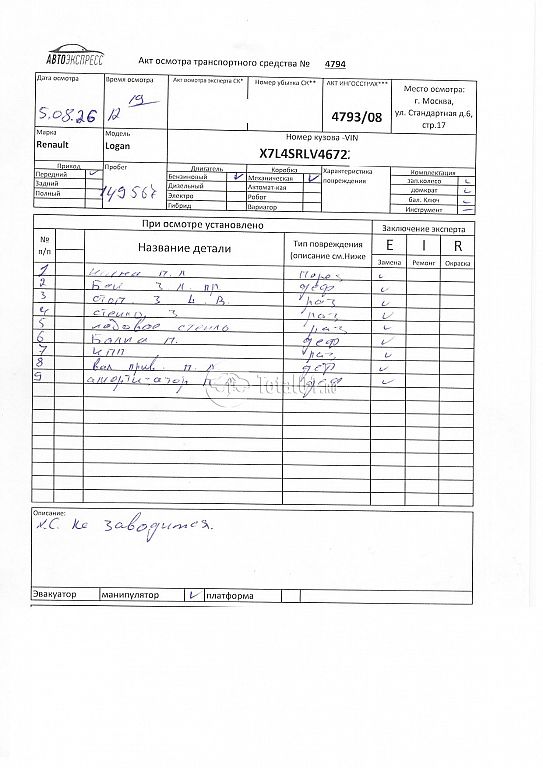 АВТОЭКСПРЕСС
Акт осмотра транспортного средства № 4794
Дата осмотра
Время осмотра
Акт осмотра эксперта СК*
Номер убытка СК**
АКТ ИНГОССТРАХ***
Место осмотра:
г. Москва,
ул. Стандартная д.6,
стр.17
5.08.26
12 19
4793/08
Марка
Модель
Номер кузова -VIN
Renault
Logan
X7L4SRLV4672
Привод
Пробег
Двигатель
Коробка
Характеристика
повреждения
Комплектация
Передний
Бензиновый
Механическая
зап.колесо
Задний
Дизельный
Автомат-кая
домкрат
Полный
149567
Электро
Робот
бал. Ключ
Гибрид
Вариатор
Инструмент
При осмотре установлено
Заключение эксперта
№
п/п
Название детали
Тип повреждения
(описание см.Ниже
E I R
Замена Ремонт Окраска
1 п. л
2 З л. пр деф
3 З д. в. раз
4 З. раз
5 лобовое стекло раз
6 Балка п. деф
7 КПП раз.
8 вал прив. п. л деф
9 п деф
Описание:
не заводится.
Эвакуатор
манипулятор
платформа